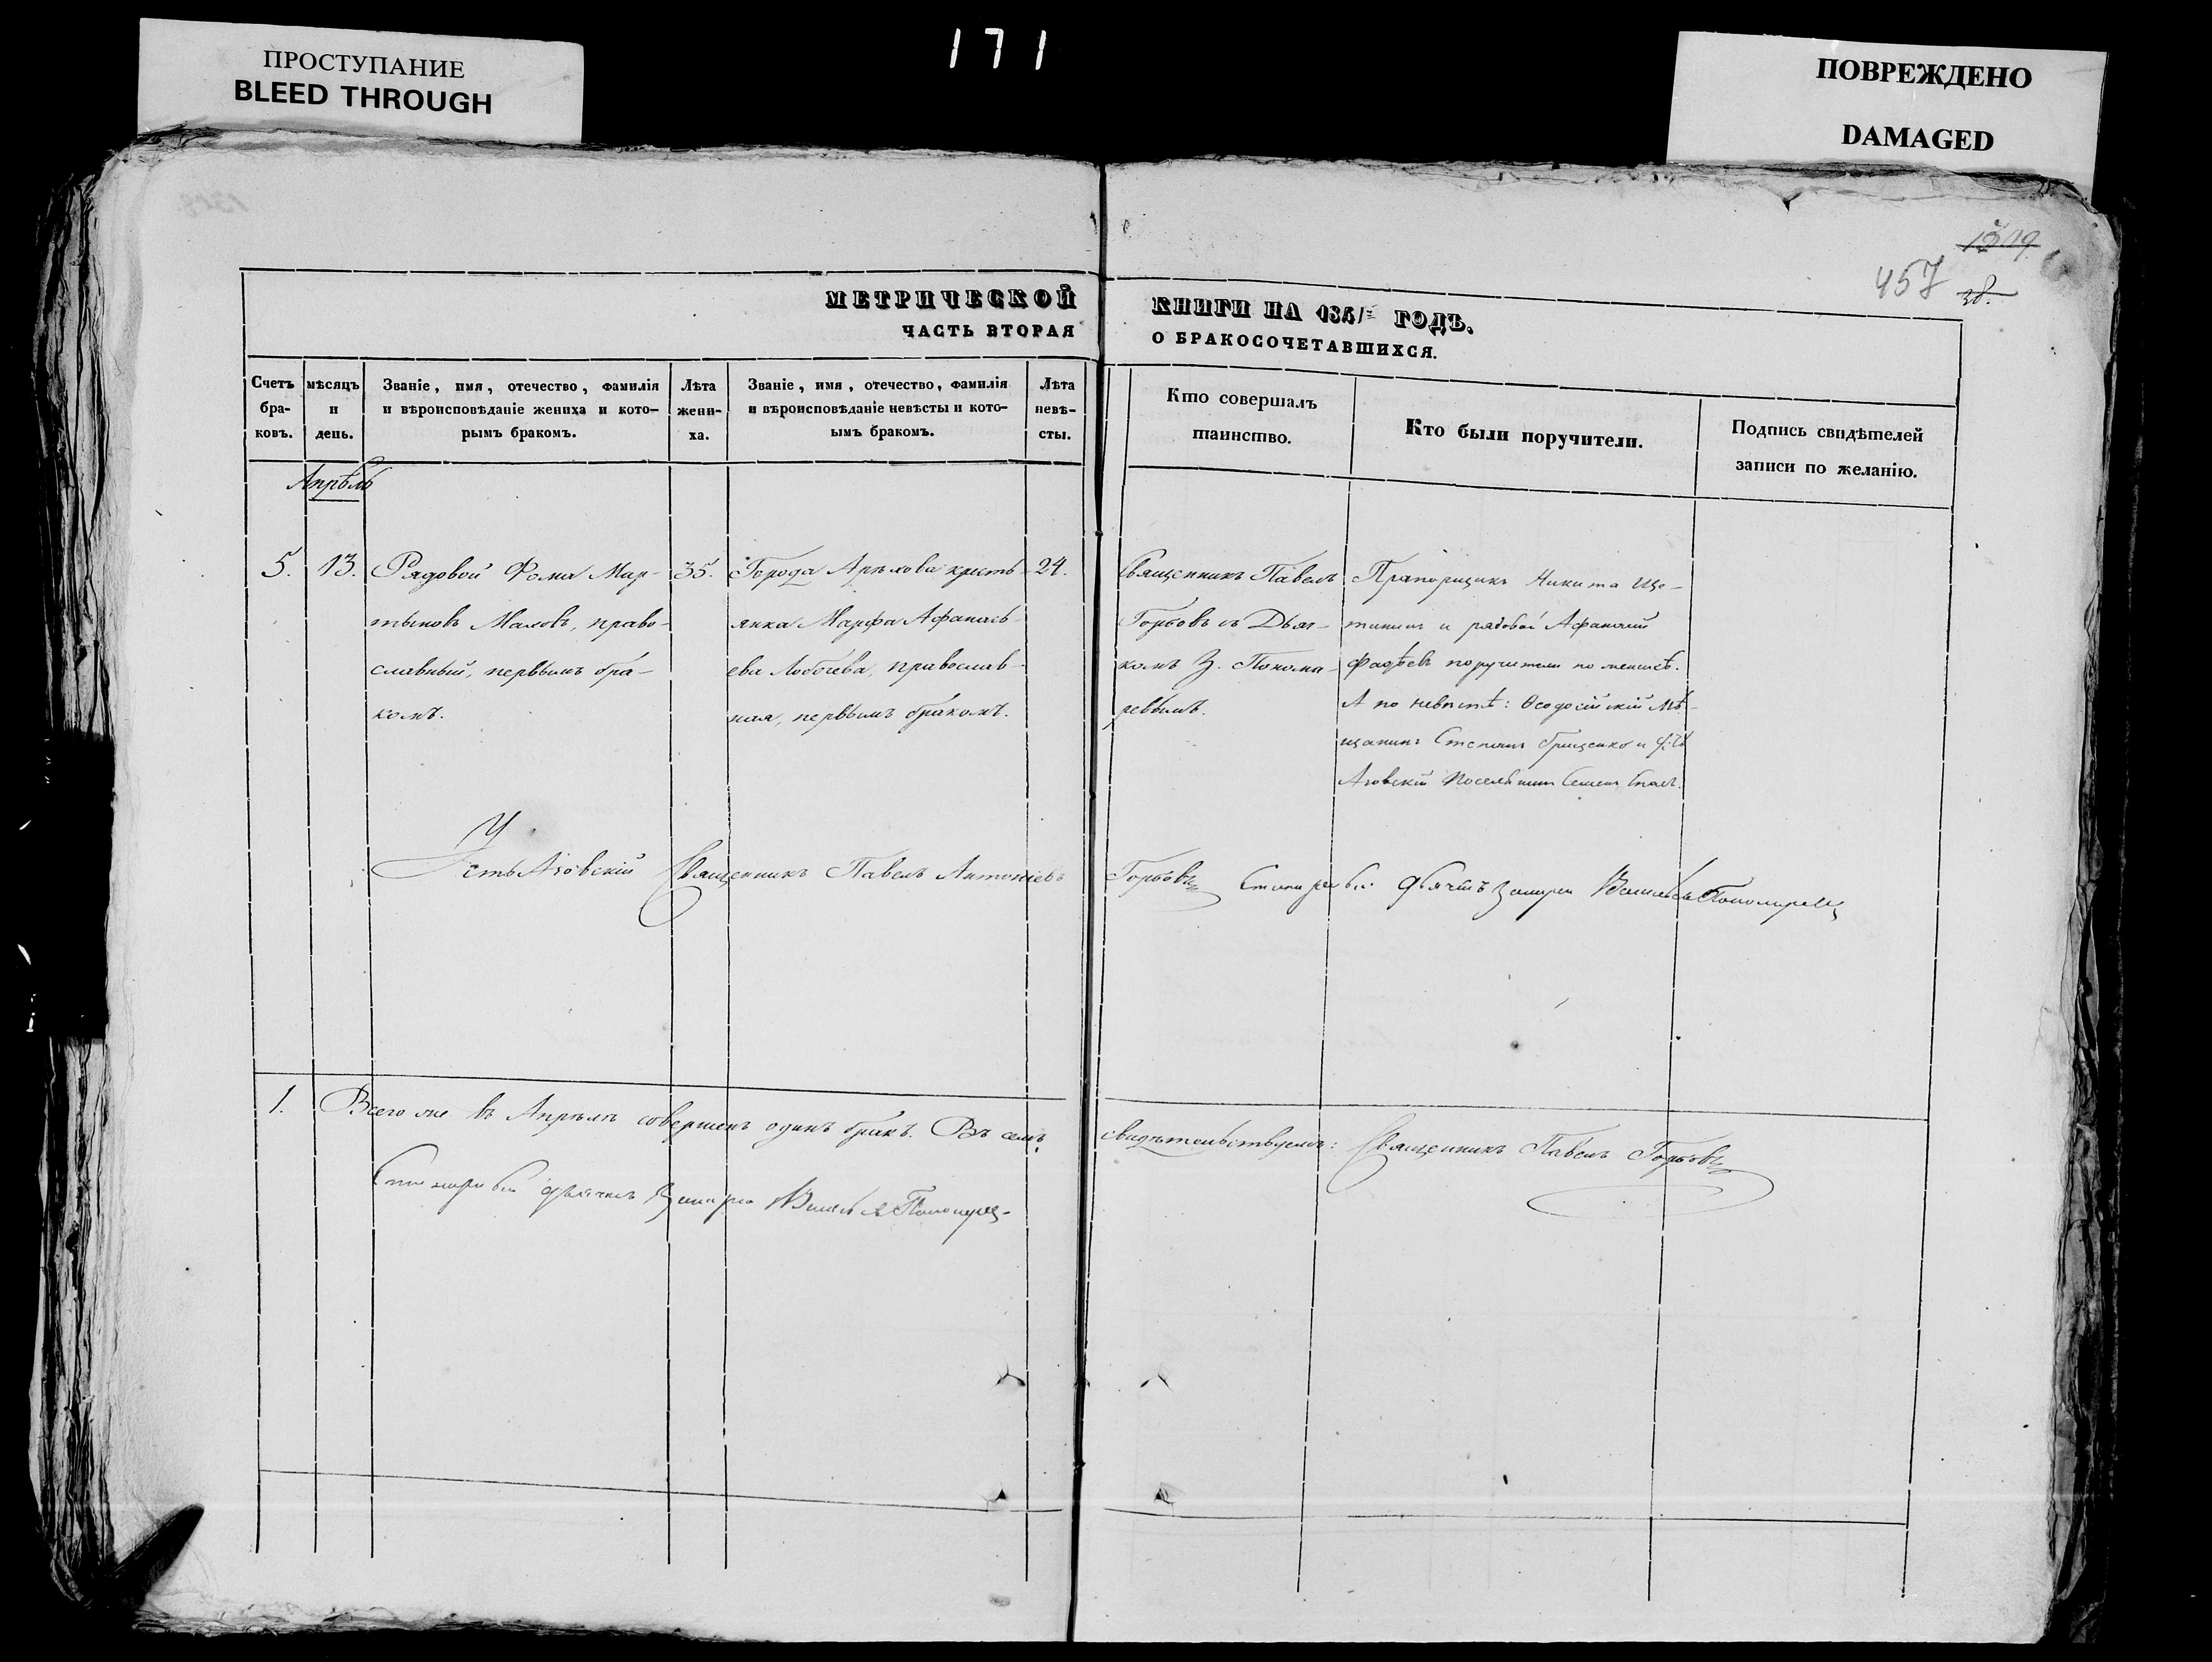 ПРОСТУПАНИЕ
BLEED THROUGH
171
ПОВРЕЖДЕНО
DAMAGED
1319
457
38.
МЕТРИЧЕСКОЙ
ЧАСТЬ ВТОРАЯ
КНИГИ НА 1851 ГОДЪ.
О БРАКОСОЧЕТАВШИХСЯ.
Счетъ бра- ковъ.
мѣсяцъ и день.
Званіе, имя, отечество, фамилія
и вѣроисповѣданіе жениха и кото-
рымъ бракомъ.
Лѣта жени- ха.
Званіе, имя, отечество, фамилія
и вѣроисповѣданіе невѣсты и кото-
ымъ бракомъ.
Лѣта невѣ- сты.
Кто совершалъ
таинство.
Кто были поручители.
Подпись свидѣтелей
записи по желанію.
Апрѣль
5.
13.
Рядовой Фома Мар-
тыновъ Маловъ, право-
славный, первымъ бра-
комъ.
35.
Города Арѣхова кресть-
янка Марфа Афанась-
ева Лобачева, православ-
ная, первымъ бракомъ.
24.
Священникъ Павелъ
Горбовъ съ Дьяч-
комъ З. Понома-
ревымъ.
Прапорщикъ Никита Ще-
тининъ и рядовой Афанасій
Фадѣевъ поручители по женихѣ.
А по невѣстѣ: Ѳеодосійскій Мѣ-
щанинъ Степанъ Грищенко и
Азовскій Поселянинъ Семенъ
Усть Азовскій Священникъ Павелъ Антоніевъ Горбовъ
дьячекъ Захарій Васильевъ Пономаревъ
1.
Всего же въ Апрѣлѣ совершенъ одинъ бракъ. Въ семъ
свидѣтельствуемъ: Священникъ Павелъ Горбовъ
дьячекъ Захарій Васильевъ Пономаревъ